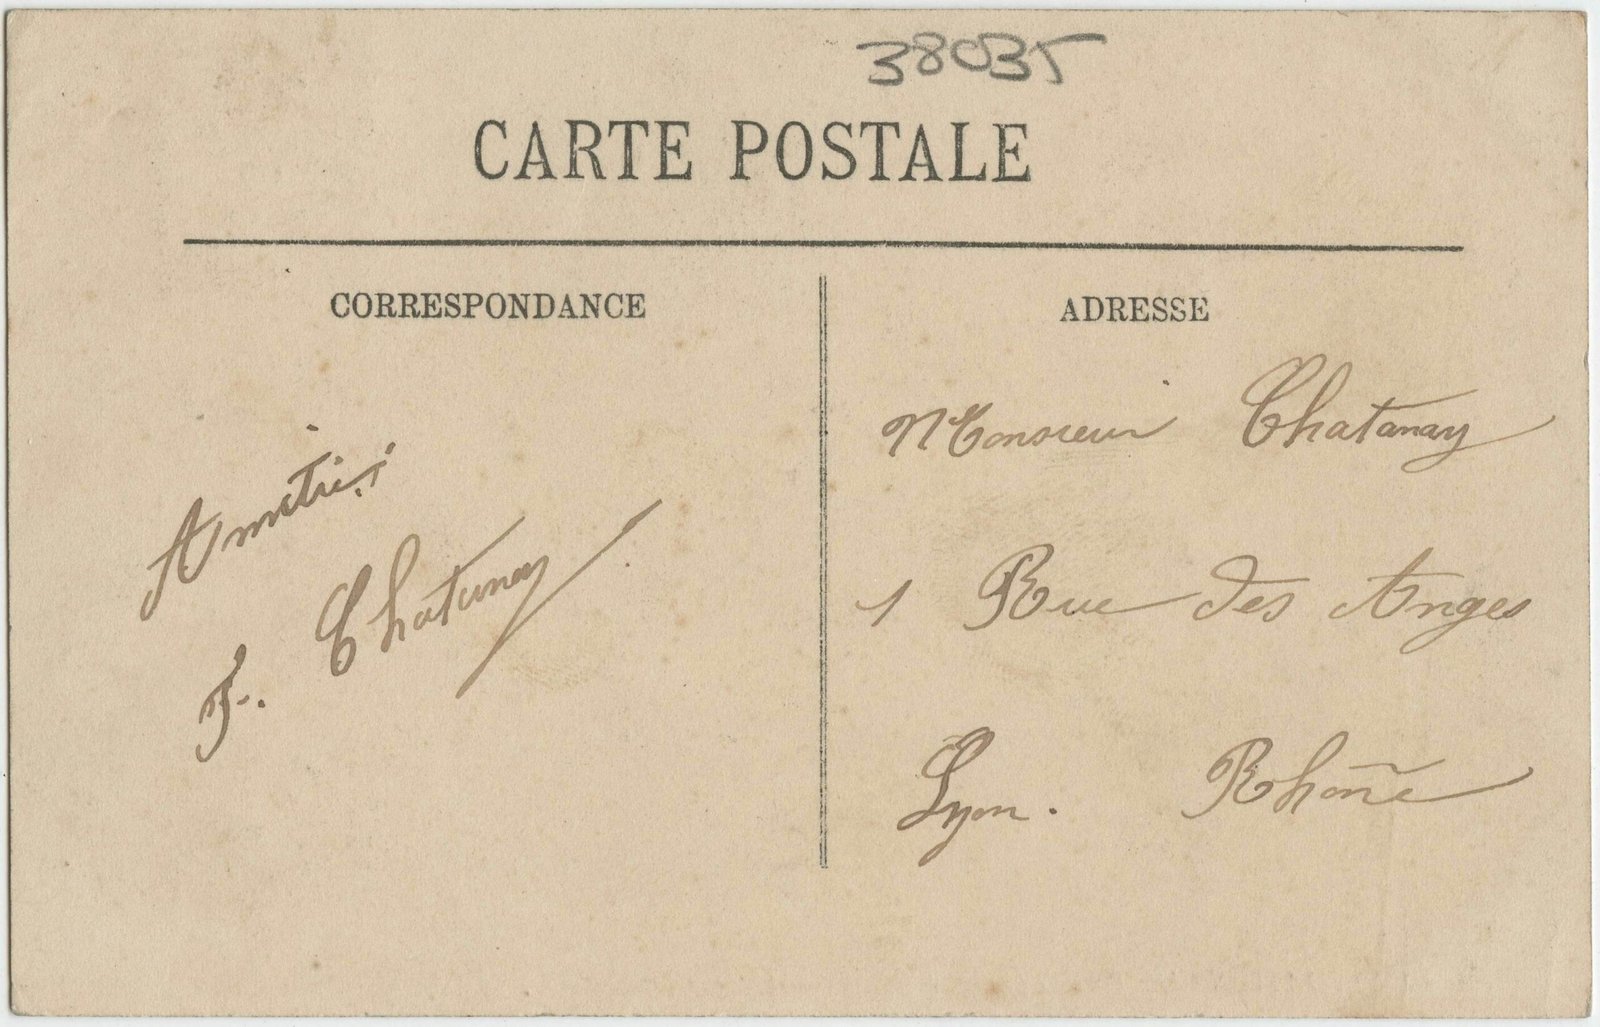 38035
CARTE POSTALE
CORRESPONDANCE
Amitiés
F. Chatanay
ADRESSE
Monsieur Chatanay
1 Rue des Anges
Lyon. Rhône